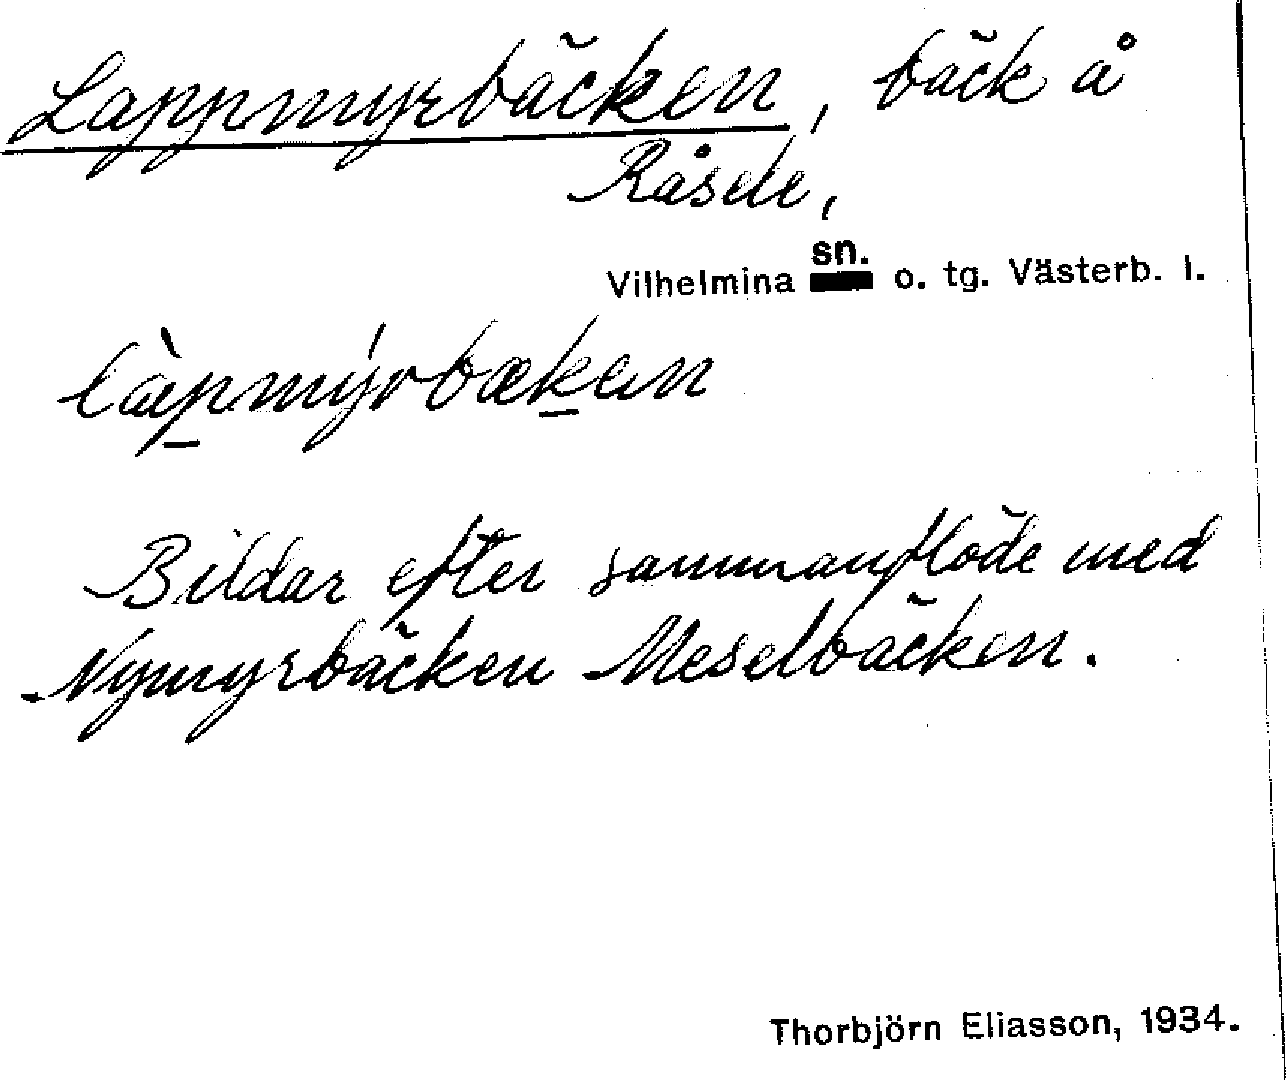 Lappmyrbäcken, bäck å
Råsele,
Vilhelmina sn. o. tg. Västerb. l.
Bildar efter sammanflöde med
Nymyrbäcken Meselbäcken.
Thorbjörn Eliasson, 1934.